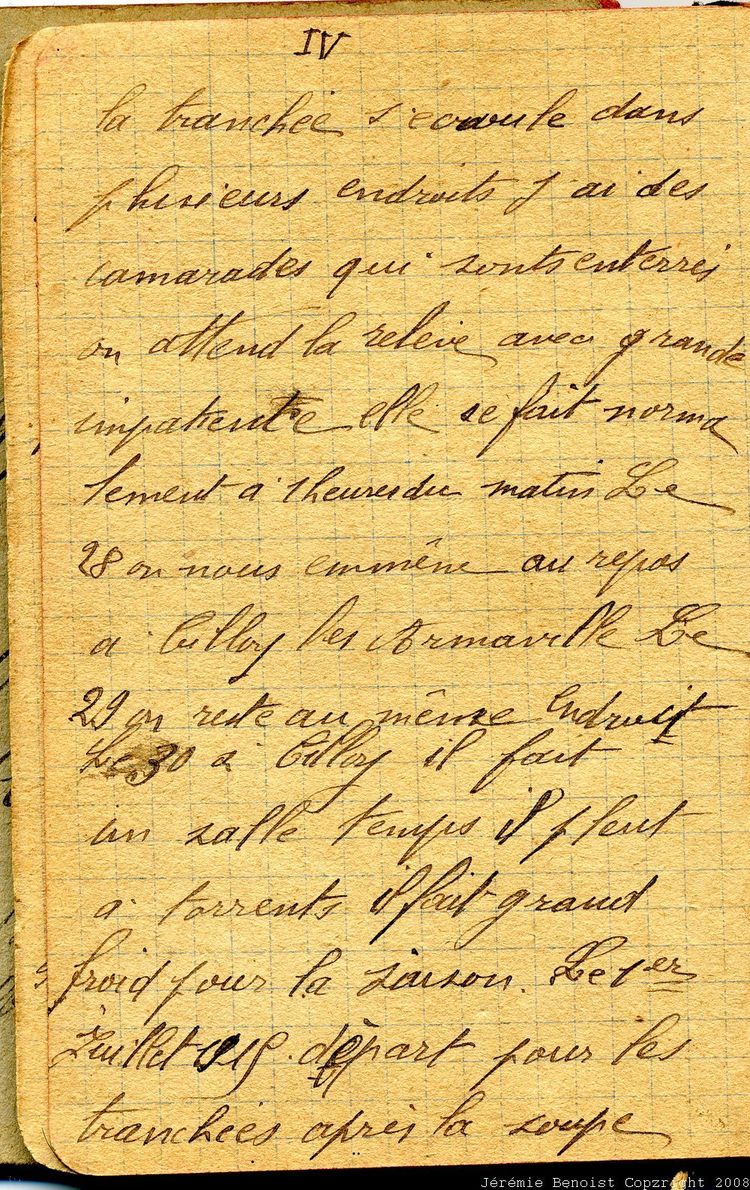 IV
la tranchée s'ecroule dans
plusieurs endroits j'ai des
camarades qui sonts enterrés
on attend la relève avec grande
impatiente elle se fait norma
lement a 1 heures du matin Le
28 on nous emmêne au repos
a Tilloy les Hermaville Le
29 on reste au même endroit
Le 30 a Tilloy il fait
un salle temps il pleut
a torrents il fait grand
froid pour la saison. Le 1er
Juillet départ pour les
tranchées après la soupe
Jérémie Benoist Copzright 2008